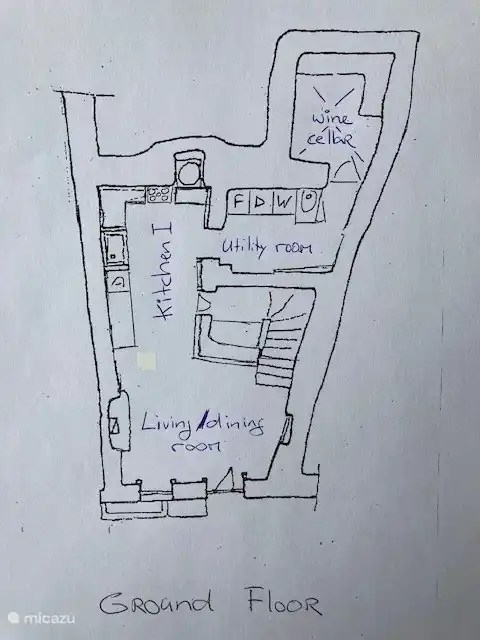 wine
cellar
F D W
Utility room
Kitchen I
D
Living/dining
room
GROUND FLOOR
micazu